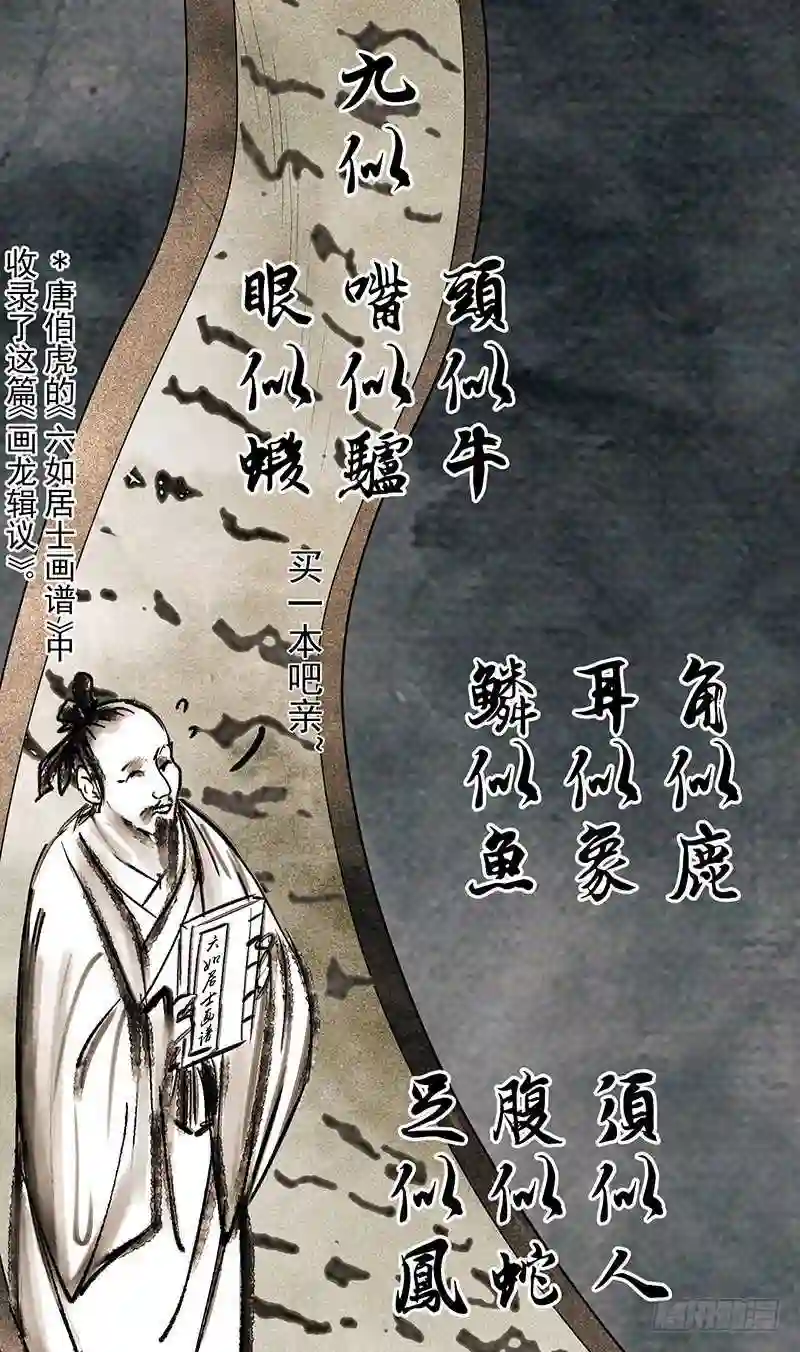 九似
頭似牛
嘴似驢
眼似蝦
角似鹿
耳似象
鱗似魚
須似人
腹似蛇
足似鳳
*唐伯虎的《六如居士画谱》中
收录了这篇《画龙辑议》。
买一本吧亲~
六如居士画谱